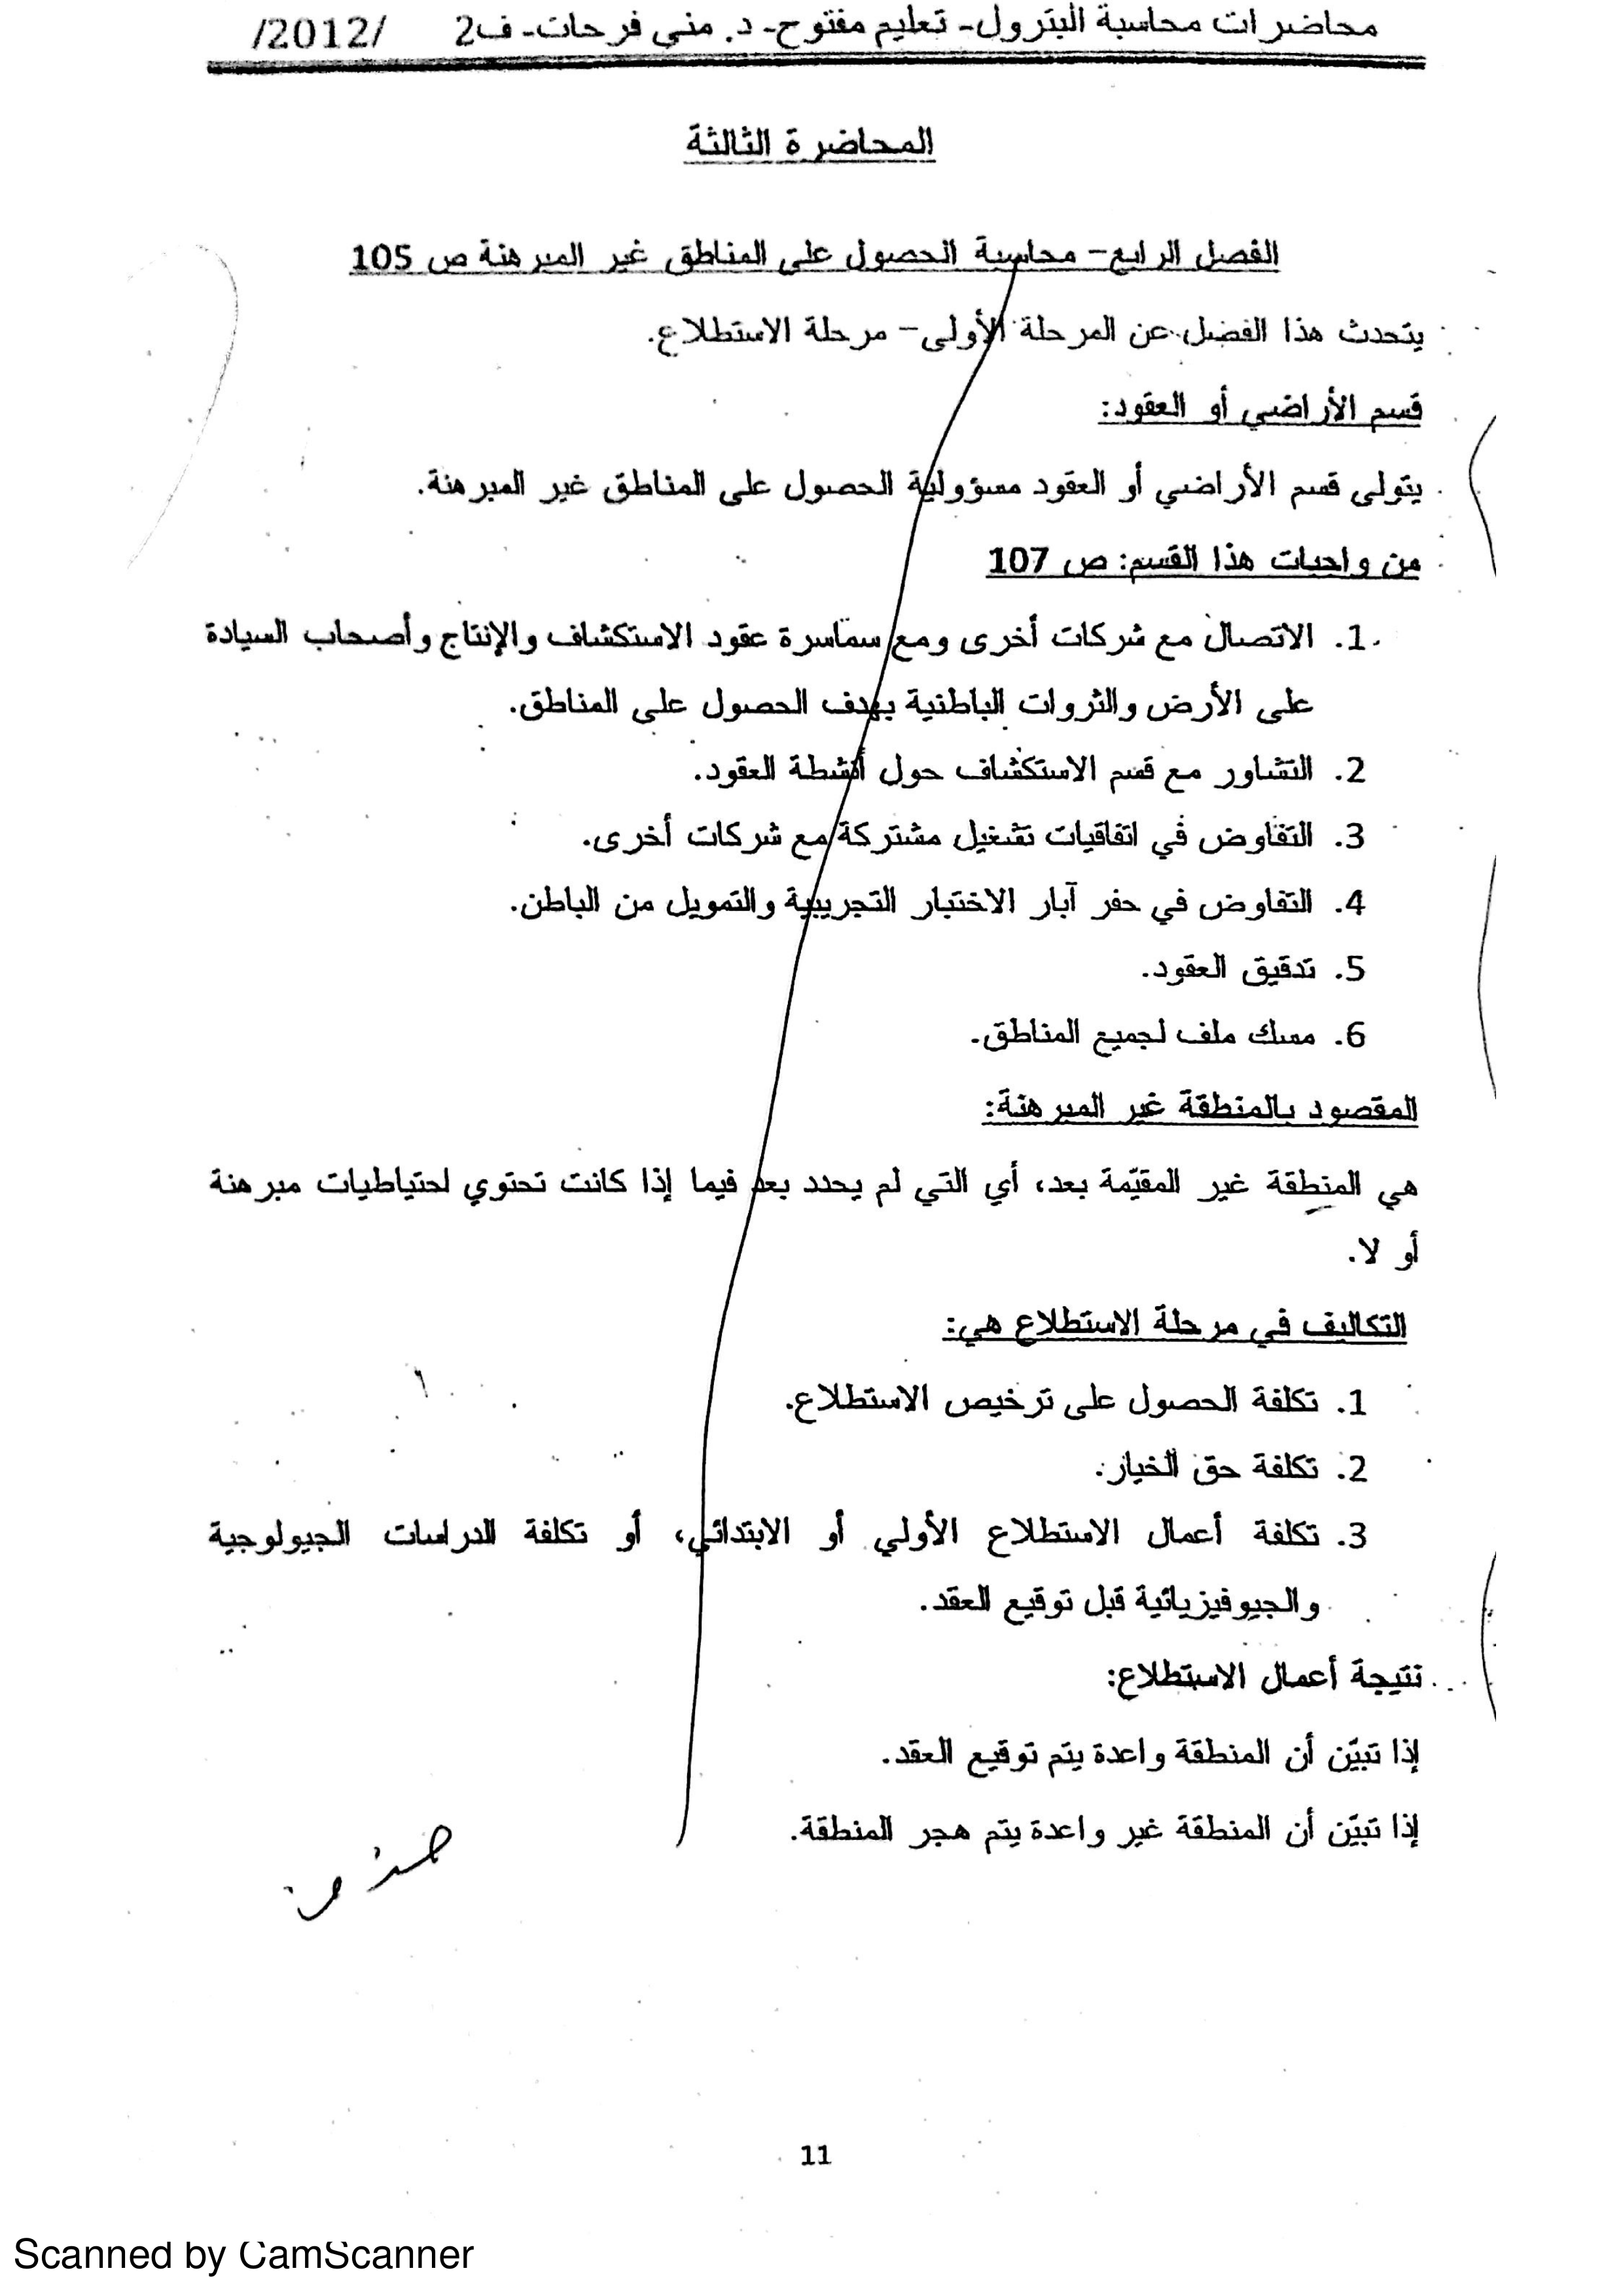 محاضرات محاسبة البترول- تعليم مفتوح- د. منى فرحات- ف2 /2012/
المحاضرة الثالثة
الفصل الرابع- محاسبة الحصول على المناطق غير المبرهنة ص 105
يتحدث هذا الفصل عن المرحلة الأولى- مرحلة الاستطلاع.
قسم الأراضي أو العقود:
يتولى قسم الأراضي أو العقود مسؤولية الحصول على المناطق غير المبرهنة.
من واجبات هذا القسم: ص 107
1. الاتصال مع شركات أخرى ومع سماسرة عقود الاستكشاف والإنتاج وأصحاب السيادة
على الأرض والثروات الباطنية بهدف الحصول على المناطق.
2. التشاور مع قسم الاستكشاف حول أنشطة العقود.
3. التفاوض في اتفاقيات تشغيل مشتركة مع شركات أخرى.
4. التفاوض في حفر آبار الاختبار التجريبية والتمويل من الباطن.
5. تدقيق العقود.
6. مسك ملف لجميع المناطق.
المقصود بالمنطقة غير المبرهنة:
هي المنطقة غير المقيّمة بعد، أي التي لم يحدد بعد فيما إذا كانت تحتوي لحتياطيات مبرهنة
أو لا.
التكاليف في مرحلة الاستطلاع هي:
1. تكلفة الحصول على ترخيص الاستطلاع.
2. تكلفة حق الخيار.
3. تكلفة أعمال الاستطلاع الأولي أو الابتدائي، أو تكلفة الدراسات الجيولوجية
والجيوفيزيائية قبل توقيع العقد.
نتيجة أعمال الاستطلاع:
إذا تبيّن أن المنطقة واعدة يتم توقيع العقد.
إذا تبيّن أن المنطقة غير واعدة يتم هجر المنطقة.
11
Scanned by CamScanner